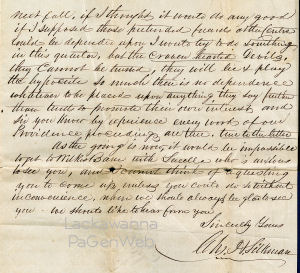 next fall, if I thought it would do any good
if I supposed those pretended friends at the Centre
could be depended upon I would try to do something
in this quarter, but the Craven hearted Devils,
they Cannot be trusted, they will be & play
the hypocrite so much there is no dependence
whatever to be placed upon anything they say further
than tends to promote their own interest and
Sir you know by experience every word of our
Providence proceeding are true, true to the letter
As the going is now, it would be impossible
to get to Wilkes Barre with Sucella who is anxious
to see you, and I cannot think of requesting
you to come up, unless you could do so without
inconvenience, when we should always be glad to see
you - we should like to hear from you
Sincerely Yours
Chs. H. Silkman
Lackawanna
PaGenWeb